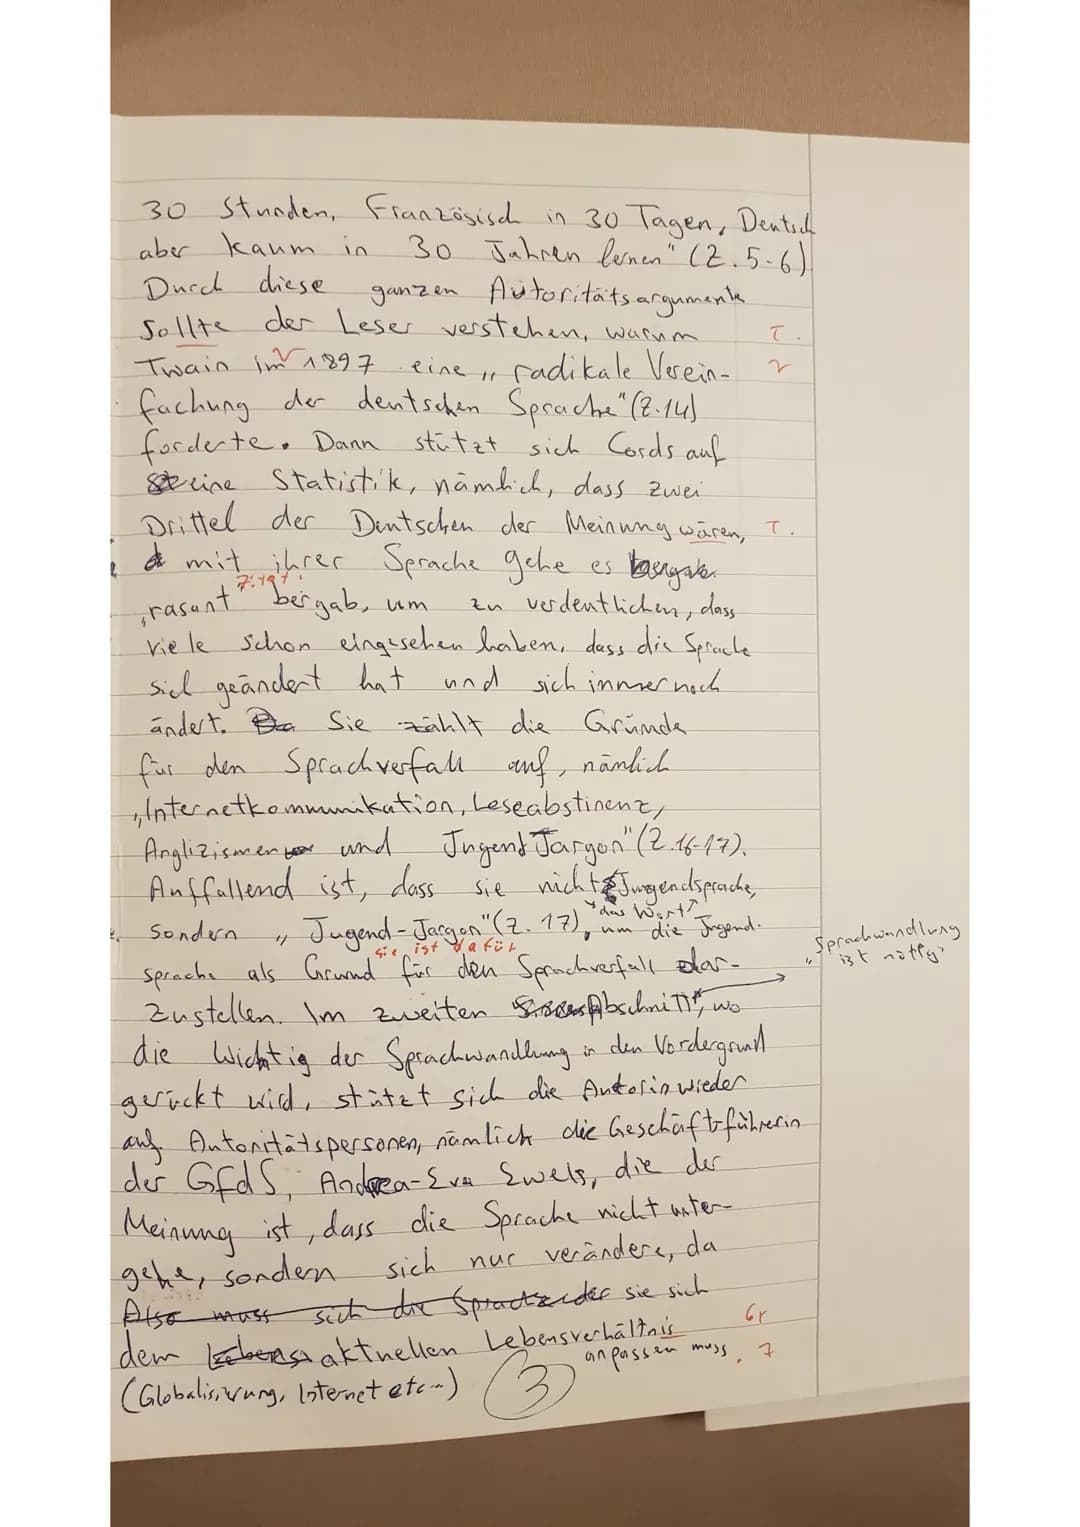 30 Stunden, Französisch in 30 Tagen, Deutsch
aber kaum in 30 Jahren lernen" (Z.5-6).
Durch diese ganzen Autoritätsargumente
sollte der Leser verstehen, warum T.
Twain im 1897 eine „radikale Verein-
fachung der deutschen Sprache" (Z.14)
forderte. Dann stützt sich Cords auf
eine Statistik, nämlich, dass zwei
Drittel der Deutschen der Meinung wären, T.
mit ihrer Sprache gehe es
Zitat
„rasant" bergab, um zu verdeutlichen, dass
viele schon eingesehen haben, dass die Sprache
sich geändert hat und sich immer noch
ändert. Sie zählt die Gründe
für den Sprachverfall auf, nämlich
„Internetkommunikation, Leseabstinenz,
Anglizismen und Jugend Jargon" (Z.16-17).
Auffallend ist, dass sie nicht Jungendsprache,
"das Wort"
sondern „Jugend-Jargon" (Z. 17), um die Jugend-
sie ist dafür
sprache als Grund für den Sprachverfall dar-
„Sprachwandlung
ist nötig"
zustellen. Im zweiten Abschnitt, wo
die Wichtig der Sprachwandlung in den Vordergrund
gerückt wird, stützt sich die Autorin wieder
auf Autoritätspersonen, nämlich die Geschäftsführerin
der GfdS, Andrea-Eva Ewels, die der
Meinung ist, dass die Sprache nicht unter-
gehe, sondern sich nur verändere, da
Also muss sich die sie sich
dem aktuellen Lebensverhältnis Gr
anpassen muss. Z
(Globalisierung, Internet etc...) 3